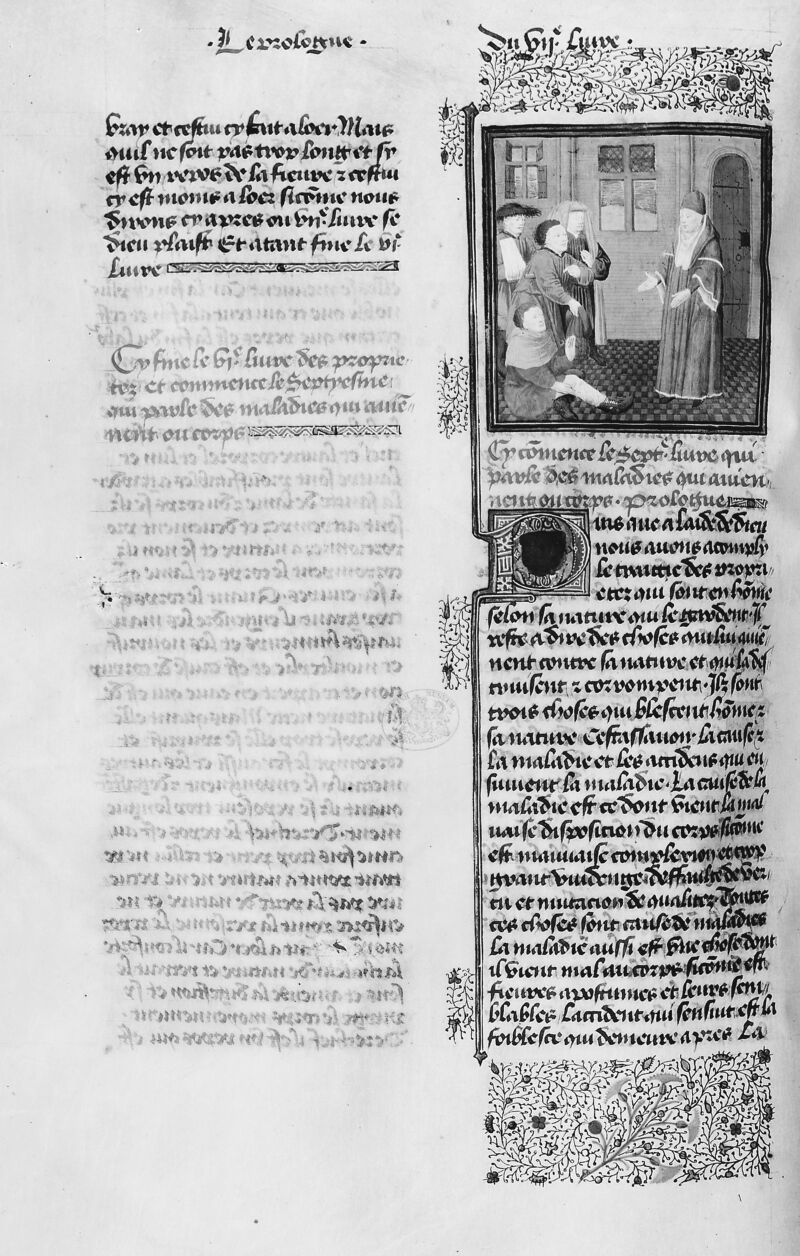 .Le prologue.
Du vije. livre.
vray et cestui cy fait a loer Mais
quil ne soit pas trop long et sy
est vn repos de la fieure & cestui
cy est moins a loer sicōme nous
dirons cy apres ou vije. liure se
dieu plaist Et atant fine le vje.
liure
Cy fine le vje. liure des proprie-
tez et commence le Septyesme
qui parle des maladies qui auiē-
nent ou corps
Cy cōmence le Septe. liure qui
parle des maladies qui auien-
nent ou corps. Prologue
Puis que a laide de dieu
nous auons acomply
le traittie des propri-
etez qui sont en hōme
selon sa nature qui le gardent. Il
reste a dire des choses qui lui auiē-
nent contre sa nature et qui la des
truisent & corrompent. Ilz sont
trois choses qui blescent hōme &
sa nature Cestassauoir. la cause &
la maladie et les accidens qui en
suiuent la maladie. La cause de la
maladie est ce dont vient la mal
uaise disposicion du corps sicōme
est mauuaise complexion et trop
grant vuidenge. deffaulte de ver-
tu et mutacion de qualitez. Toutes
ces choses sont cause de maladies
La maladie aussi est vne chose dont
il vient mal au corps sicōme est
fieures apostumes et leurs sem-
blables Laccident qui sensiut est la
foiblesce qui demeure apres La